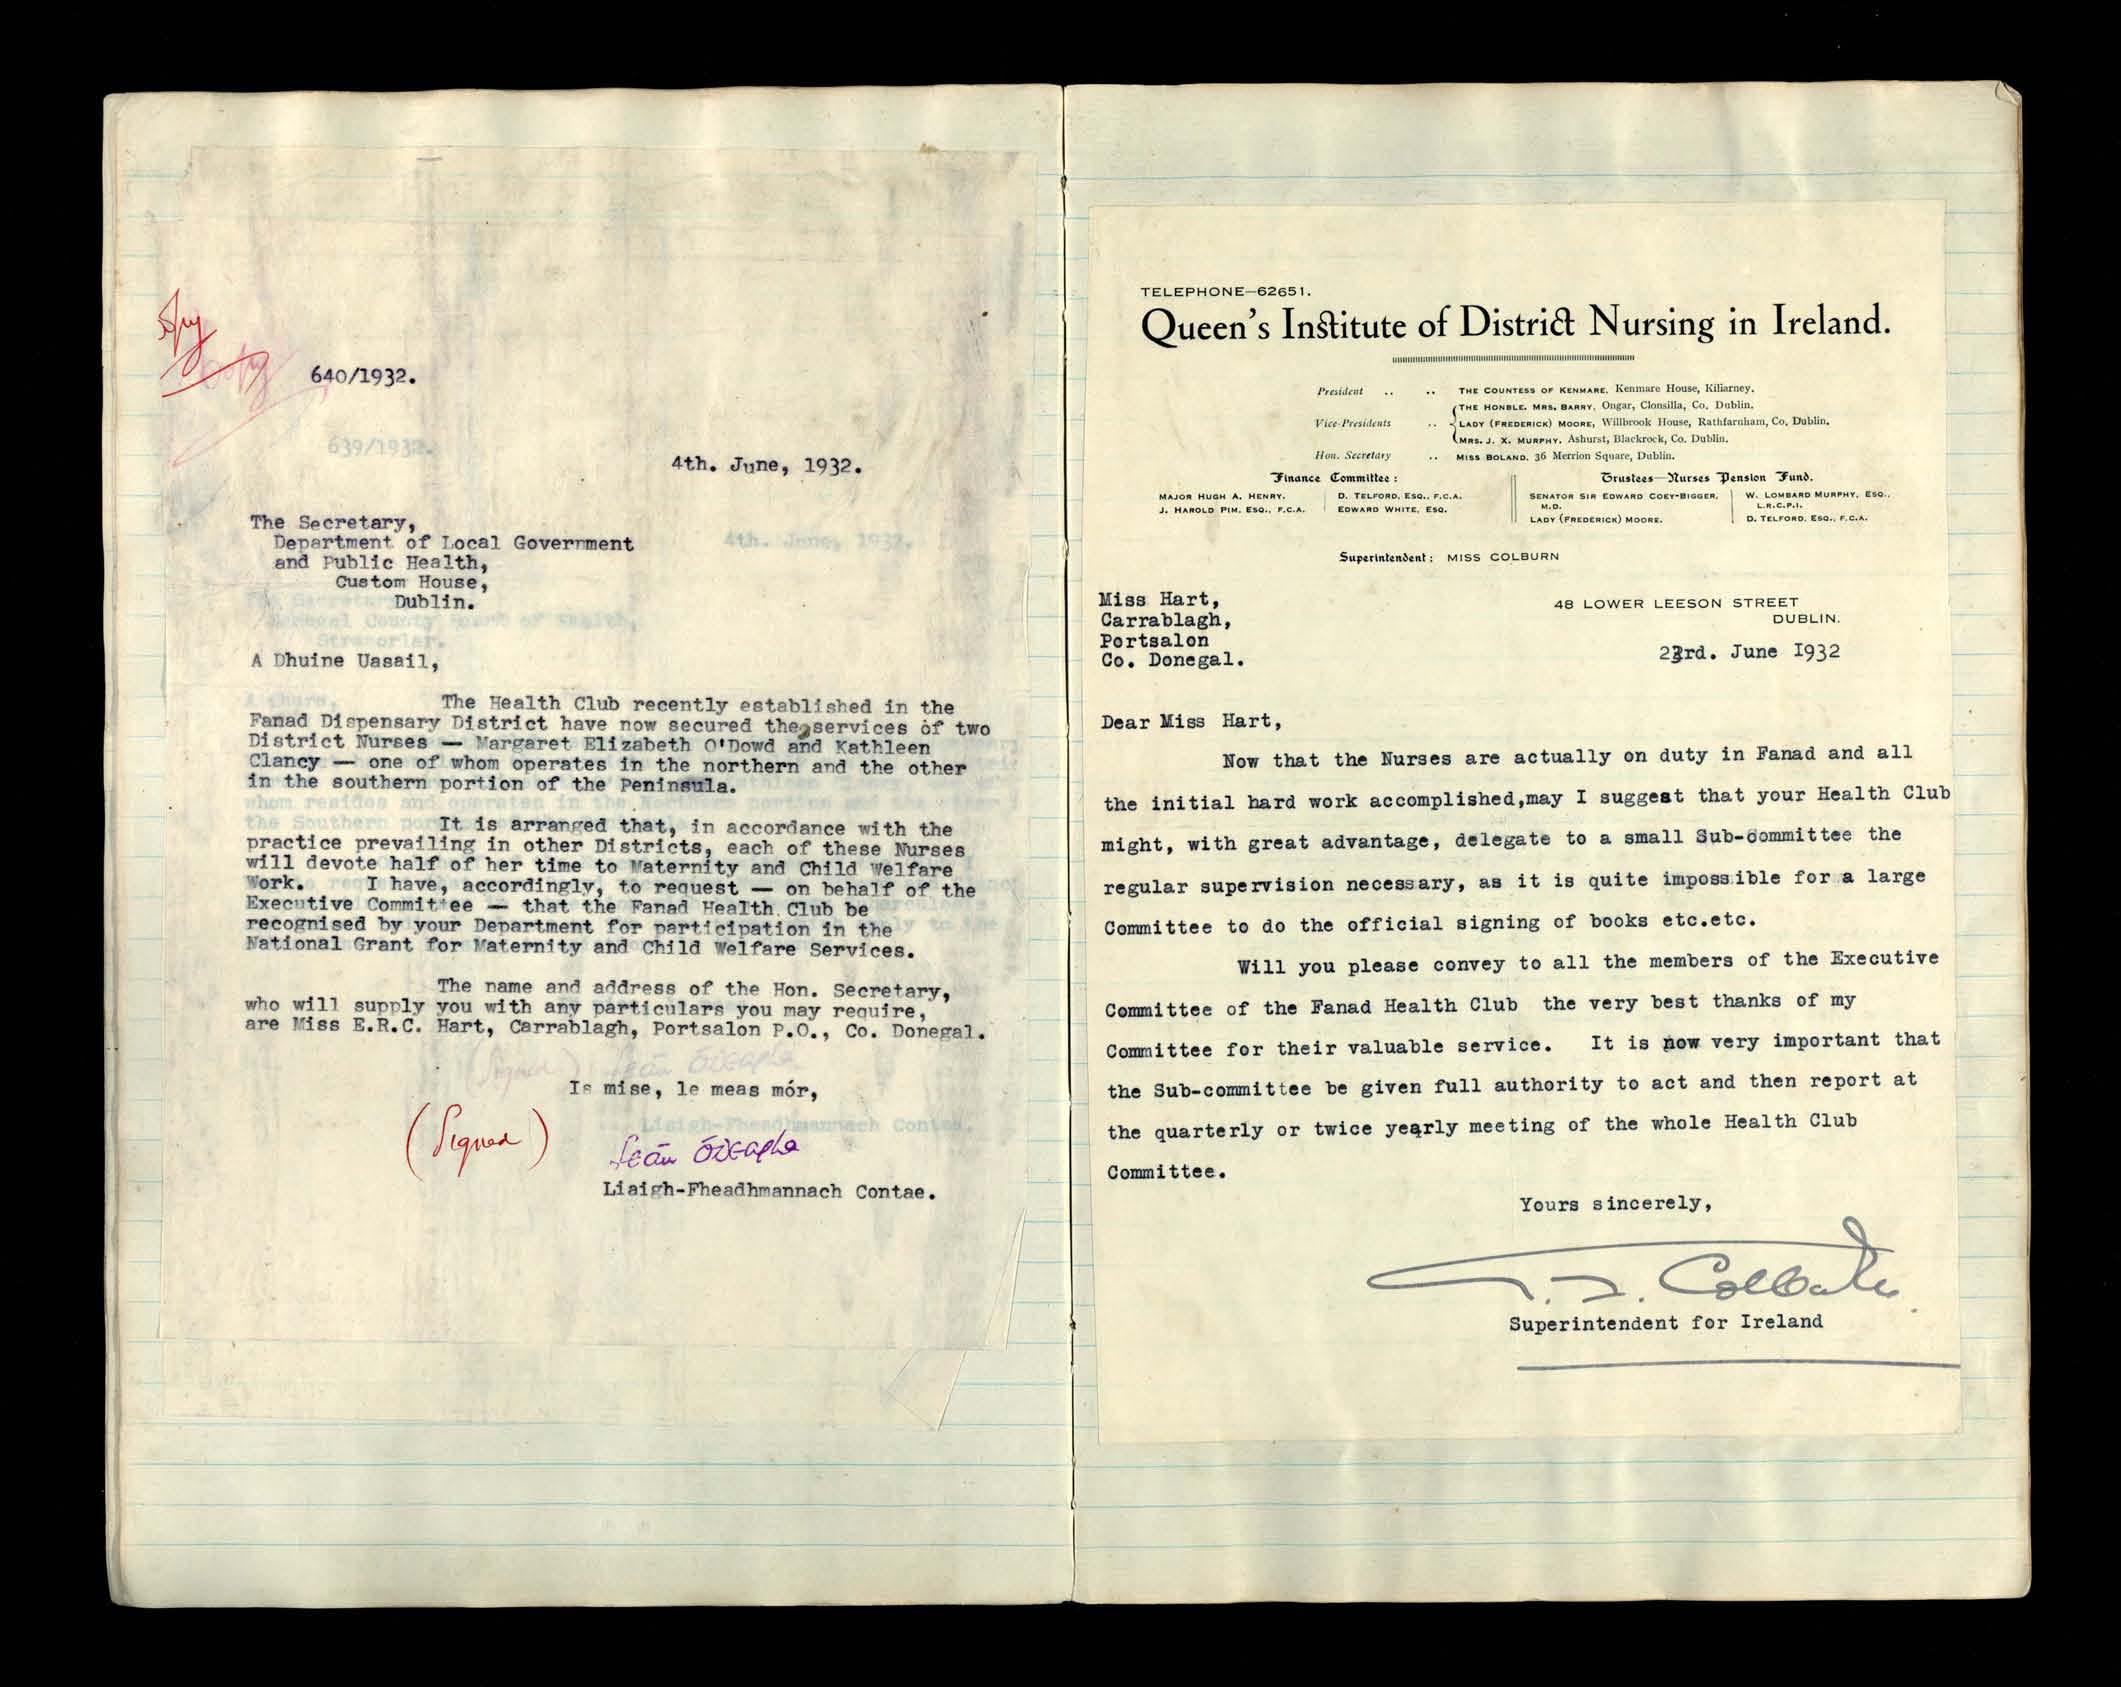 Copy
640/1932.
4th. June, 1932.
The Secretary,
Department of Local Government
and Public Health,
Custom House,
Dublin.
A Dhuine Uasail,
The Health Club recently established in the
Fanad Dispensary District have now secured the services of two
District Nurses — Margaret Elizabeth O'Dowd and Kathleen
Clancy — one of whom operates in the northern and the other
in the southern portion of the Peninsula.
It is arranged that, in accordance with the
practice prevailing in other Districts, each of these Nurses
will devote half of her time to Maternity and Child Welfare
Work. I have, accordingly, to request — on behalf of the
Executive Committee — that the Fanad Health Club be
recognised by your Department for participation in the
National Grant for Maternity and Child Welfare Services.
The name and address of the Hon. Secretary,
who will supply you with any particulars you may require,
are Miss E.R.C. Hart, Carrablagh, Portsalon P.O., Co. Donegal.
Is mise, le meas mór,
(Signed)
Seán
Liaigh-Fheadhmannach Contae.
TELEPHONE—62651.
Queen's Institute of District Nursing in Ireland.
President .. .. THE COUNTESS OF KENMARE, Kenmare House, Killarney.
THE HONBLE. MRS. BARRY, Ongar, Clonsilla, Co. Dublin.
Vice-Presidents .. LADY (FREDERICK) MOORE, Willbrook House, Rathfarnham, Co. Dublin.
MRS. J. X. MURPHY, Ashurst, Blackrock, Co. Dublin.
Hon. Secretary .. MISS BOLAND, 36 Merrion Square, Dublin.
Finance Committee: Trustees—Nurses Pension Fund.
MAJOR HUGH A. HENRY. D. TELFORD, ESQ., F.C.A. SENATOR SIR EDWARD COEY-BIGGER, W. LOMBARD MURPHY, ESQ.,
J. HAROLD PIM, ESQ., F.C.A. EDWARD WHITE, ESQ. M.D. L.R.C.P.I.
LADY (FREDERICK) MOORE. D. TELFORD, ESQ., F.C.A.
Superintendent: MISS COLBURN
Miss Hart,
Carrablagh,
Portsalon
Co. Donegal.
48 LOWER LEESON STREET
DUBLIN.
23rd. June 1932
Dear Miss Hart,
Now that the Nurses are actually on duty in Fanad and all
the initial hard work accomplished,may I suggest that your Health Club
might, with great advantage, delegate to a small Sub-committee the
regular supervision necessary, as it is quite impossible for a large
Committee to do the official signing of books etc.etc.
Will you please convey to all the members of the Executive
Committee of the Fanad Health Club the very best thanks of my
Committee for their valuable service. It is now very important that
the Sub-committee be given full authority to act and then report at
the quarterly or twice yearly meeting of the whole Health Club
Committee.
Yours sincerely,
Superintendent for Ireland